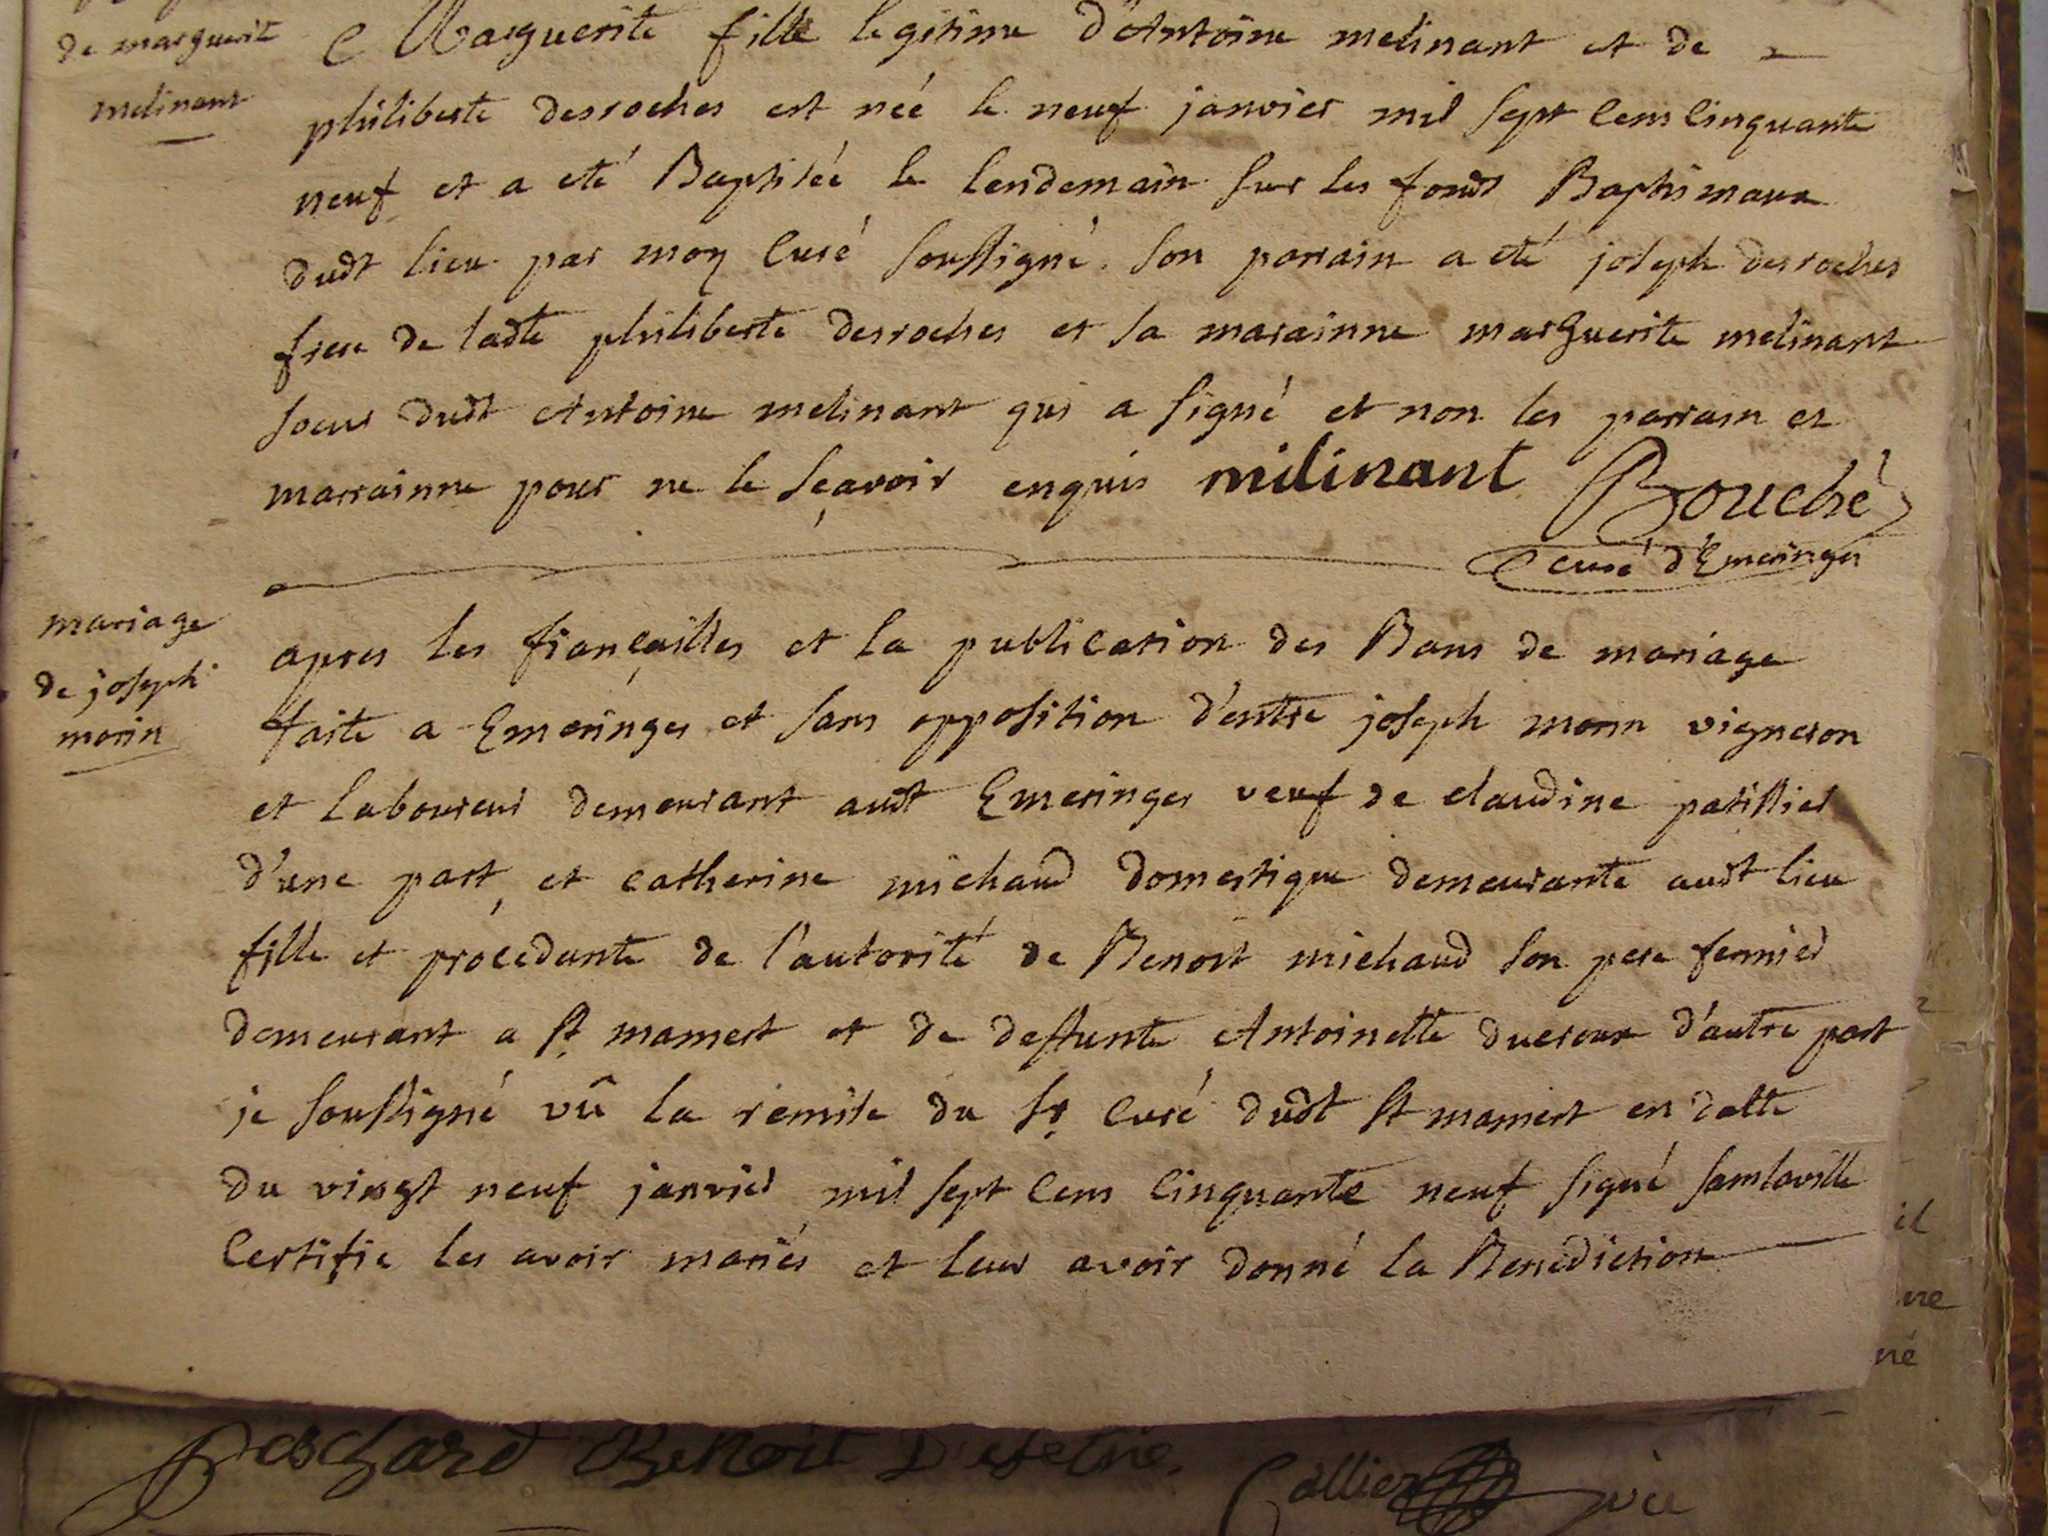 de marguerite
melinant
Marguerite fille legitime d'Antoine melinant et de
philiberte desroches est née le neuf janvier mil sept cens cinquante
neuf et a eté Baptisée le lendemain sur les fonds Baptismaux
dudt lieu par moy curé soussigné. son parrain a eté joseph desroches
frere de ladte philiberte desroches et sa marainne marguerite melinant
soeur dudt Antoine melinant qui a signé et non les parrain et
marrainne pour ne le sçavoir enquis milinant Bouché
curé d'Emeringes
mariage
de joseph
morin
apres les fiançailles et la publication des Bans de mariage
faite a Emeringes et sans opposition d'entre joseph morin vigneron
et laboureur demeurant audt Emeringes veuf de claudine patissier
d'une part, et catherine michaud domestique demeurante audt lieu
fille et procedante de l'autorité de Benoit michaud son pere fermier
demeurant a St mamert et de deffunte Antoinette ducroux d'autre part
je soussigné vû la remise du Sr curé dudt St mamert en datte
du vingt neuf janvier mil sept cens cinquante neuf signé samlaville
certifie les avoir mariés et leur avoir donné la Benediction
il
re
né
Deschard Benoit
Callier vic